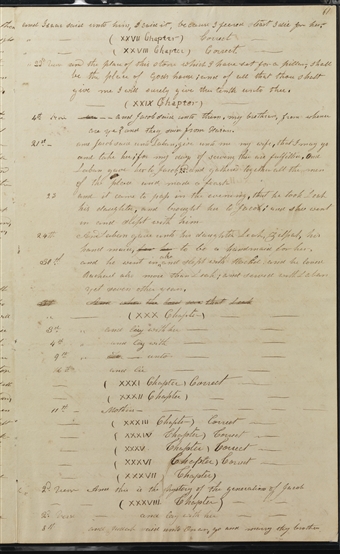 and Isaac said unto him, I said it, because I feared lest I die for her.
( XXVII Chapter ) Correct
( XXVIII Chapter ) Correct
22d verse and the place of this stone which I have set for a pillar, shall
be the place of Gods house, and of all that thou shalt
give me I will surely give the tenth unto thee.
( XXIX Chapter )
4th verse and Jacob said unto them, my brethren, from whence
are ye? and they said from Haran.
21st and Jacob said unto Laban, give unto me my wife, that I may go
and take her, for my days of serving thee are fulfilled, and
Laban gave her to Jacob, and gathered together all the men
of the place, and made a feast.
23 and it came to pass in the evening, that he took Leah
his daughter, and brought her to Jacob, and she went
in and slept with him
24th And Laban gave unto his daughter Leah, Zilpah, his
hand maid, to be a handmaid for her,
and he went in and slept with Rachel and he loved
Rachel also more than Leah, and served with Laban
yet seven other years.
( XXX Chapter )
and lay with her
4th and lay with
9th unto
and lie
( XXXI Chapter ) Correct
( XXXII Chapter )
11th Mothers
( XXXIII Chapter ) Correct
( XXXIV Chapter ) Correct
( XXXV Chapter ) Correct
( XXXVI Chapter ) Correct
( XXXVII Chapter )
2d verse And this is the history of the generation of Jacob
( XXXVIII Chapter )
2d verse and lay with her
8th and Judah said unto Onan, go and marry thy brother